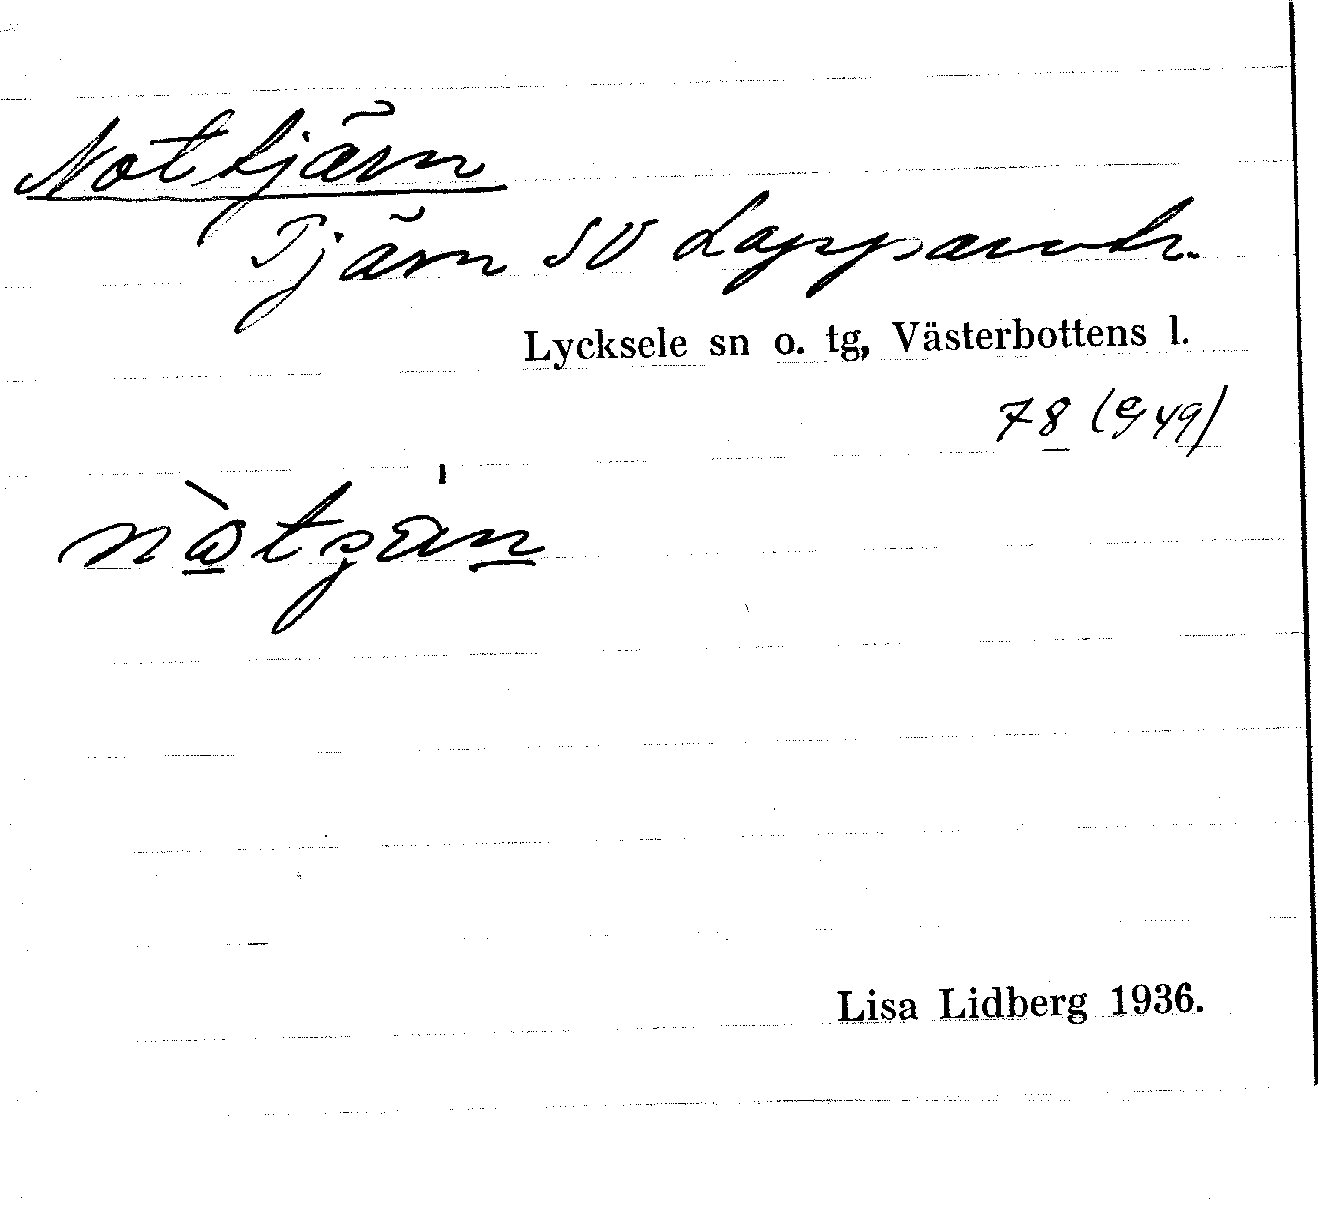 Nottjärn
Tjärn SV Lappantr.
Lycksele sn o. tg, Västerbottens l.
78 (E 49)
Lisa Lidberg 1936.